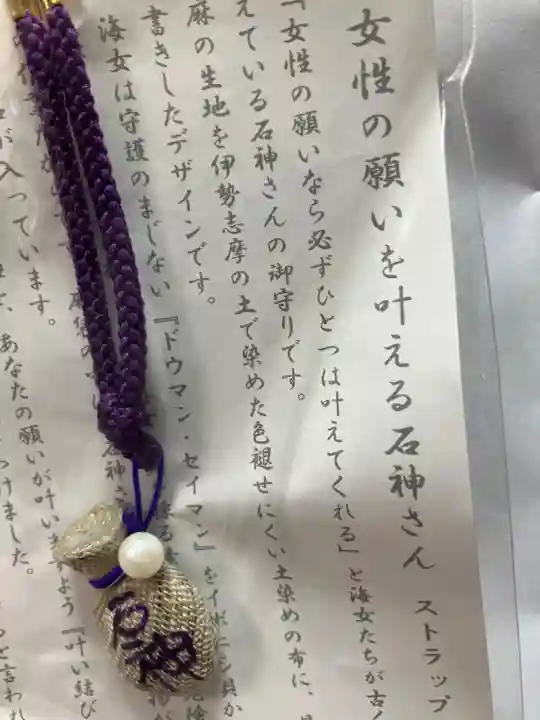 女性の願いを叶える石神さん ストラップ
「女性の願いなら必ずひとつは叶えてくれる」と海女たちが古く
えている石神さんの御守りです。
麻の生地を伊勢志摩の土で染めた色褪せにくい土染めの布に、
書きしたデザインです。
海女は守護のまじない『ドウマン・セイマン』をイボニシ貝か
が入っています。
石神さ
あなたの願いが叶いますよう『叶い結び
つけました。
と言われ
石神